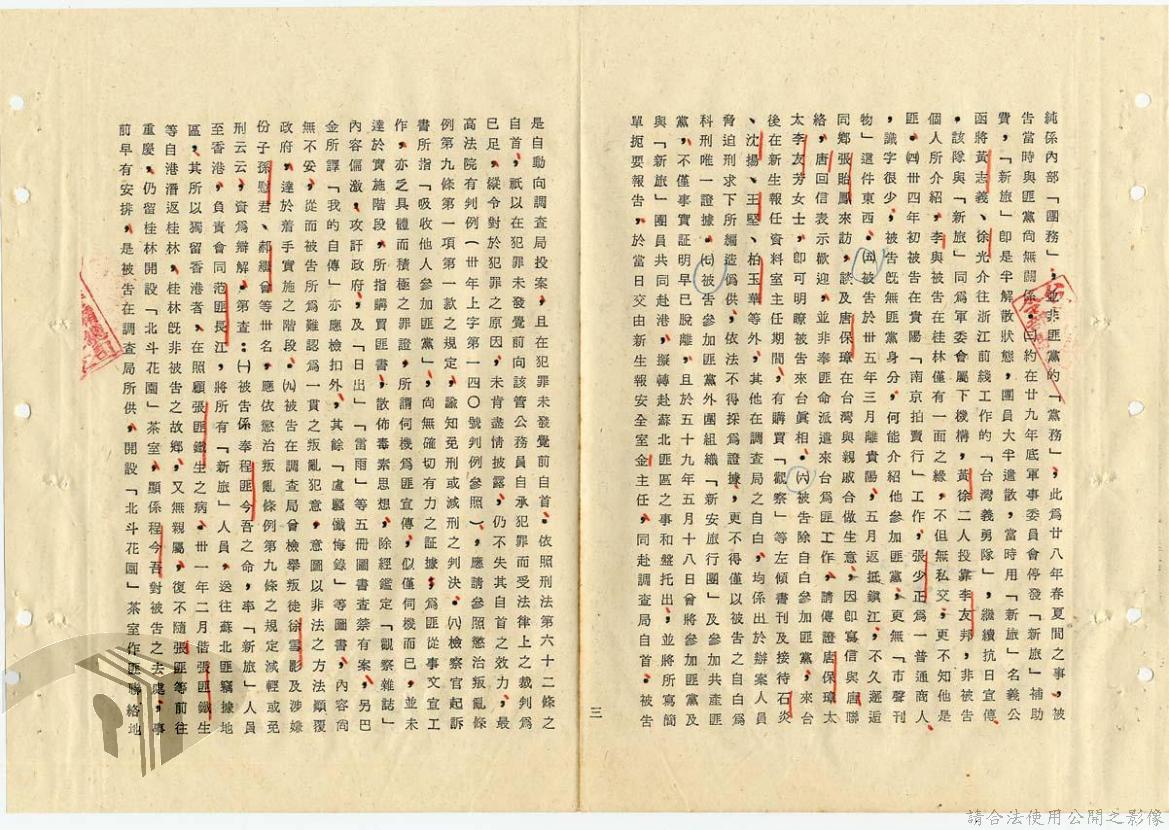 純係內部「團務」，並非匪黨的「黨務」，此為廿八年春夏間之事，被
告當時與匪黨尚無關係。㈢約在廿九年底軍事委員會停發「新旅」補助
費，「新旅」即呈半解散狀態，團員大半遣散，當時用「新旅」名義公
函將黃志義、徐光介往浙江前綫工作的「台灣義勇隊」，繼續抗日宣傳
。該隊與「新旅」同為軍委會屬下機構，黃徐二人投靠李友邦，非被告
個人所介紹，李與被告在桂林僅有一面之緣，不但無私交，更不知他是
匪。㈣卅四年初被告在貴陽「南京拍賣行」工作，張少正為一普通商人
，識字很少，被告既無匪黨身分，何能介紹他參加匪黨，更無「市聲刊
物」這件東西。㈤被告於卅五年三月離貴陽，五月返抵鎮江，不久邂逅
同鄉張貽鳳來訪，談及唐保璋在台灣與親戚合做生意，因即寫信與唐聯
絡，唐回信表示歡迎，並非奉匪命派遣來台為匪工作，請傳證唐保璋太
太李友芳女士，卽可明瞭被告來台眞相。㈥被告除自白參加匪黨，來台
後在新生報任資料室主任期間，有購買「觀察」等左傾書刊及接待石炎
、沈揚、王堅、柏玉華外，其他在調查局之自白，均係出於辦案人員
脅迫刑求下所編造僞供，依法不得採為證據，更不得僅以被告之自白為
科刑唯一證據。㈦被告參加匪黨外團組織「新安旅行團」及參加共產匪
黨，不僅事實証明早已脫離，且於五十九年五月十八日曾將參加匪黨及
與「新旅」團員共同赴港，擬轉赴蘇北匪區之事和盤托出，並將所寫簡
單扼要報告，於當日交由新生報安全室金主任，同赴調查局自首，被告
三
是自動向調查局投案，且在犯罪未發覺前自首。依照刑法第六十二條之
自首，祇以在犯罪未發覺前向該管公務員自承犯罪而受法律上之裁判為
已足，縱令對於犯罪之原因，未肯盡情披露，仍不失其自首之效力，最
高法院有判例（卅年上字第一四〇號判例參照），應請參照懲治叛亂條
例第九條第一項第一款之規定，諭知免刑或減刑之判決。㈧檢察官起訴
書所指「吸收他人參加匪黨」，尚無確切有力之証據，為匪從事文宣工
作，亦乏具體而積極之罪證，所謂伺機為匪宣傳，似僅伺機而已，並未
達於實施階段，所指購買匪書，散佈毒素思想，除經鑑定「觀察雜誌」
內容偏激，攻訐政府，及「日出」「雷雨」等五冊圖書查禁有案，另巴
金所譯「我的自傳」亦應檢扣外，其餘「盧騷懺悔錄」等圖書，內容尚
無不妥，從而被告所為難認為一貫之叛亂犯意，意圖以非法之方法顛覆
政府，達於着手實施之階段。㈨被告在調查局曾檢舉叛徒徐雪影及涉嫌
份子孫慰君、郝繼曾等卅名，應依懲治叛亂條例第九條之規定減輕或免
刑云云，資為辯解。第查：㈠被告係奉程匪今吾之命，率「新旅」人員
至香港，負責會同范匪長江，將所有「新旅」人員，送往蘇北匪竊據地
區，其所以獨留香港者，在照顧張匪鐵生之病。卅一年二月偕張匪鐵生
等自港潛返桂林，桂林既非被告之故鄉，又無親屬，復不隨張匪等前往
重慶，仍留桂林開設「北斗花園」茶室，顯係程今吾對被告之去處，事
前早有安排，是被告在調查局所供，開設「北斗花園」茶室作匪聯絡地
請合法使用公開之影像